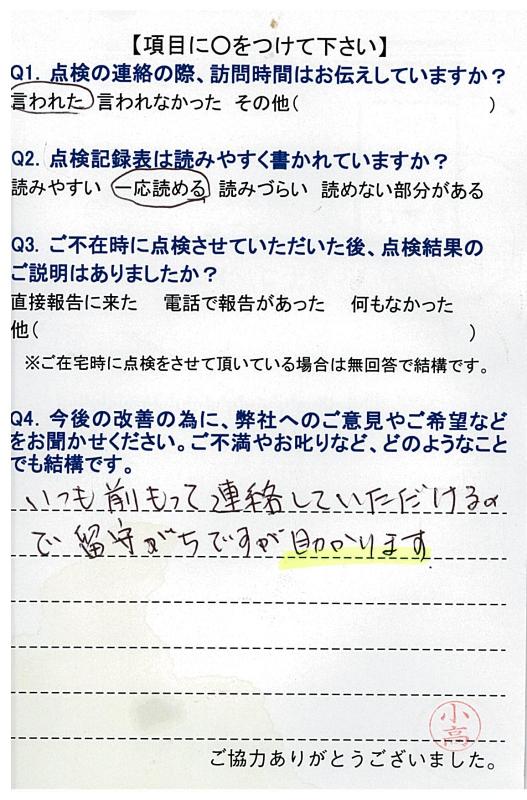 【項目に〇をつけて下さい】
Q1. 点検の連絡の際、訪問時間はお伝えしていますか?
言われた 言われなかった その他( )
Q2. 点検記録表は読みやすく書かれていますか?
読みやすい 一応読める 読みづらい 読めない部分がある
Q3. ご不在時に点検させていただいた後、点検結果の
ご説明はありましたか?
直接報告に来た 電話で報告があった 何もなかった
他( )
※ご在宅時に点検をさせて頂いている場合は無回答で結構です。
Q4. 今後の改善の為に、弊社へのご意見やご希望など
をお聞かせください。ご不満やお叱りなど、どのようなこと
でも結構です。
いつも前もって連絡していただけるの
で留守がちですが助かります
小
高
ご協力ありがとうございました。